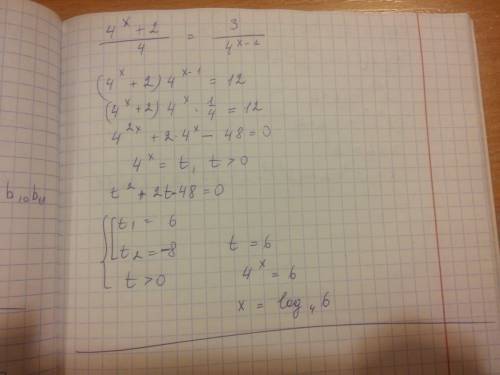 (4^x + 2)/4 = 3/4^(x-1)
(4^x + 2) 4^(x-1) = 12
(4^x + 2) 4^x · 1/4 = 12
4^(2x) + 2·4^x - 48 = 0
4^x = t, t > 0
t^2 + 2t - 48 = 0
{ [ t1 = 6
t2 = -8
t > 0
t = 6
4^x = 6
x = log_4 6